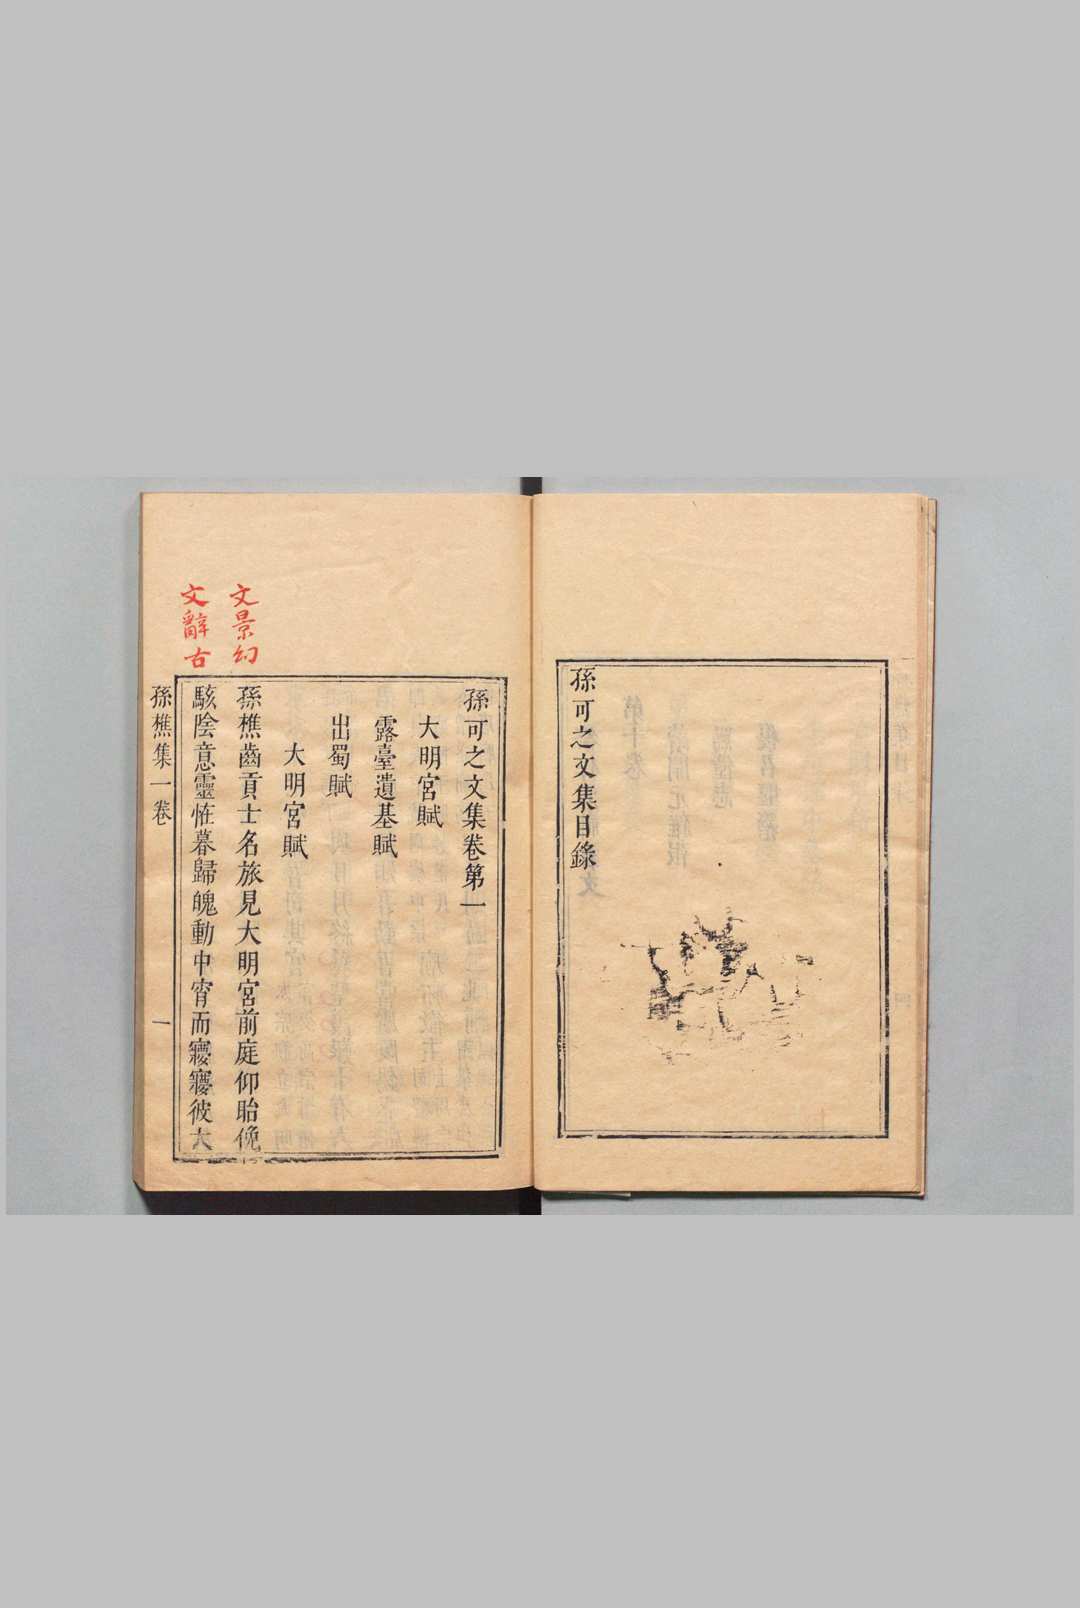 孫可之文集目錄
孫可之文集卷第一
大明宮賦
露臺遺基賦
出蜀賦
大明宮賦
孫樵齒貢士名旅見大明宮前庭仰眙俛
駭陰意靈恠暮歸魄動中宵而寢寢彼大
孫樵集一卷
一
文景幻
文辭古